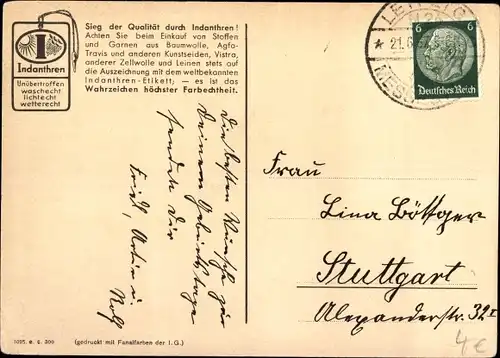 Indanthren
Unübertroffen
waschecht
lichtecht
wetterecht
Sieg der Qualität durch Indanthren!
Achten Sie beim Einkauf von Stoffen
und Garnen aus Baumwolle, Agfa-
Travis und anderen Kunstseiden, Vistra,
anderer Zellwolle und Leinen stets auf
die Auszeichnung mit dem weltbekannten
Indanthren-Etikett; — es ist das
Wahrzeichen höchster Farbechtheit.
LEIPZIG
21.6.
MESSE
6 6
Deutsches Reich
Die besten Wünsche zu
Deinem Geburtstage
sendet Dir
Rolf
Frau
Lina Böttger
Stuttgart
Alexanderstr. 32 I
(gedruckt mit Fanalfarben der I.G.)
4€